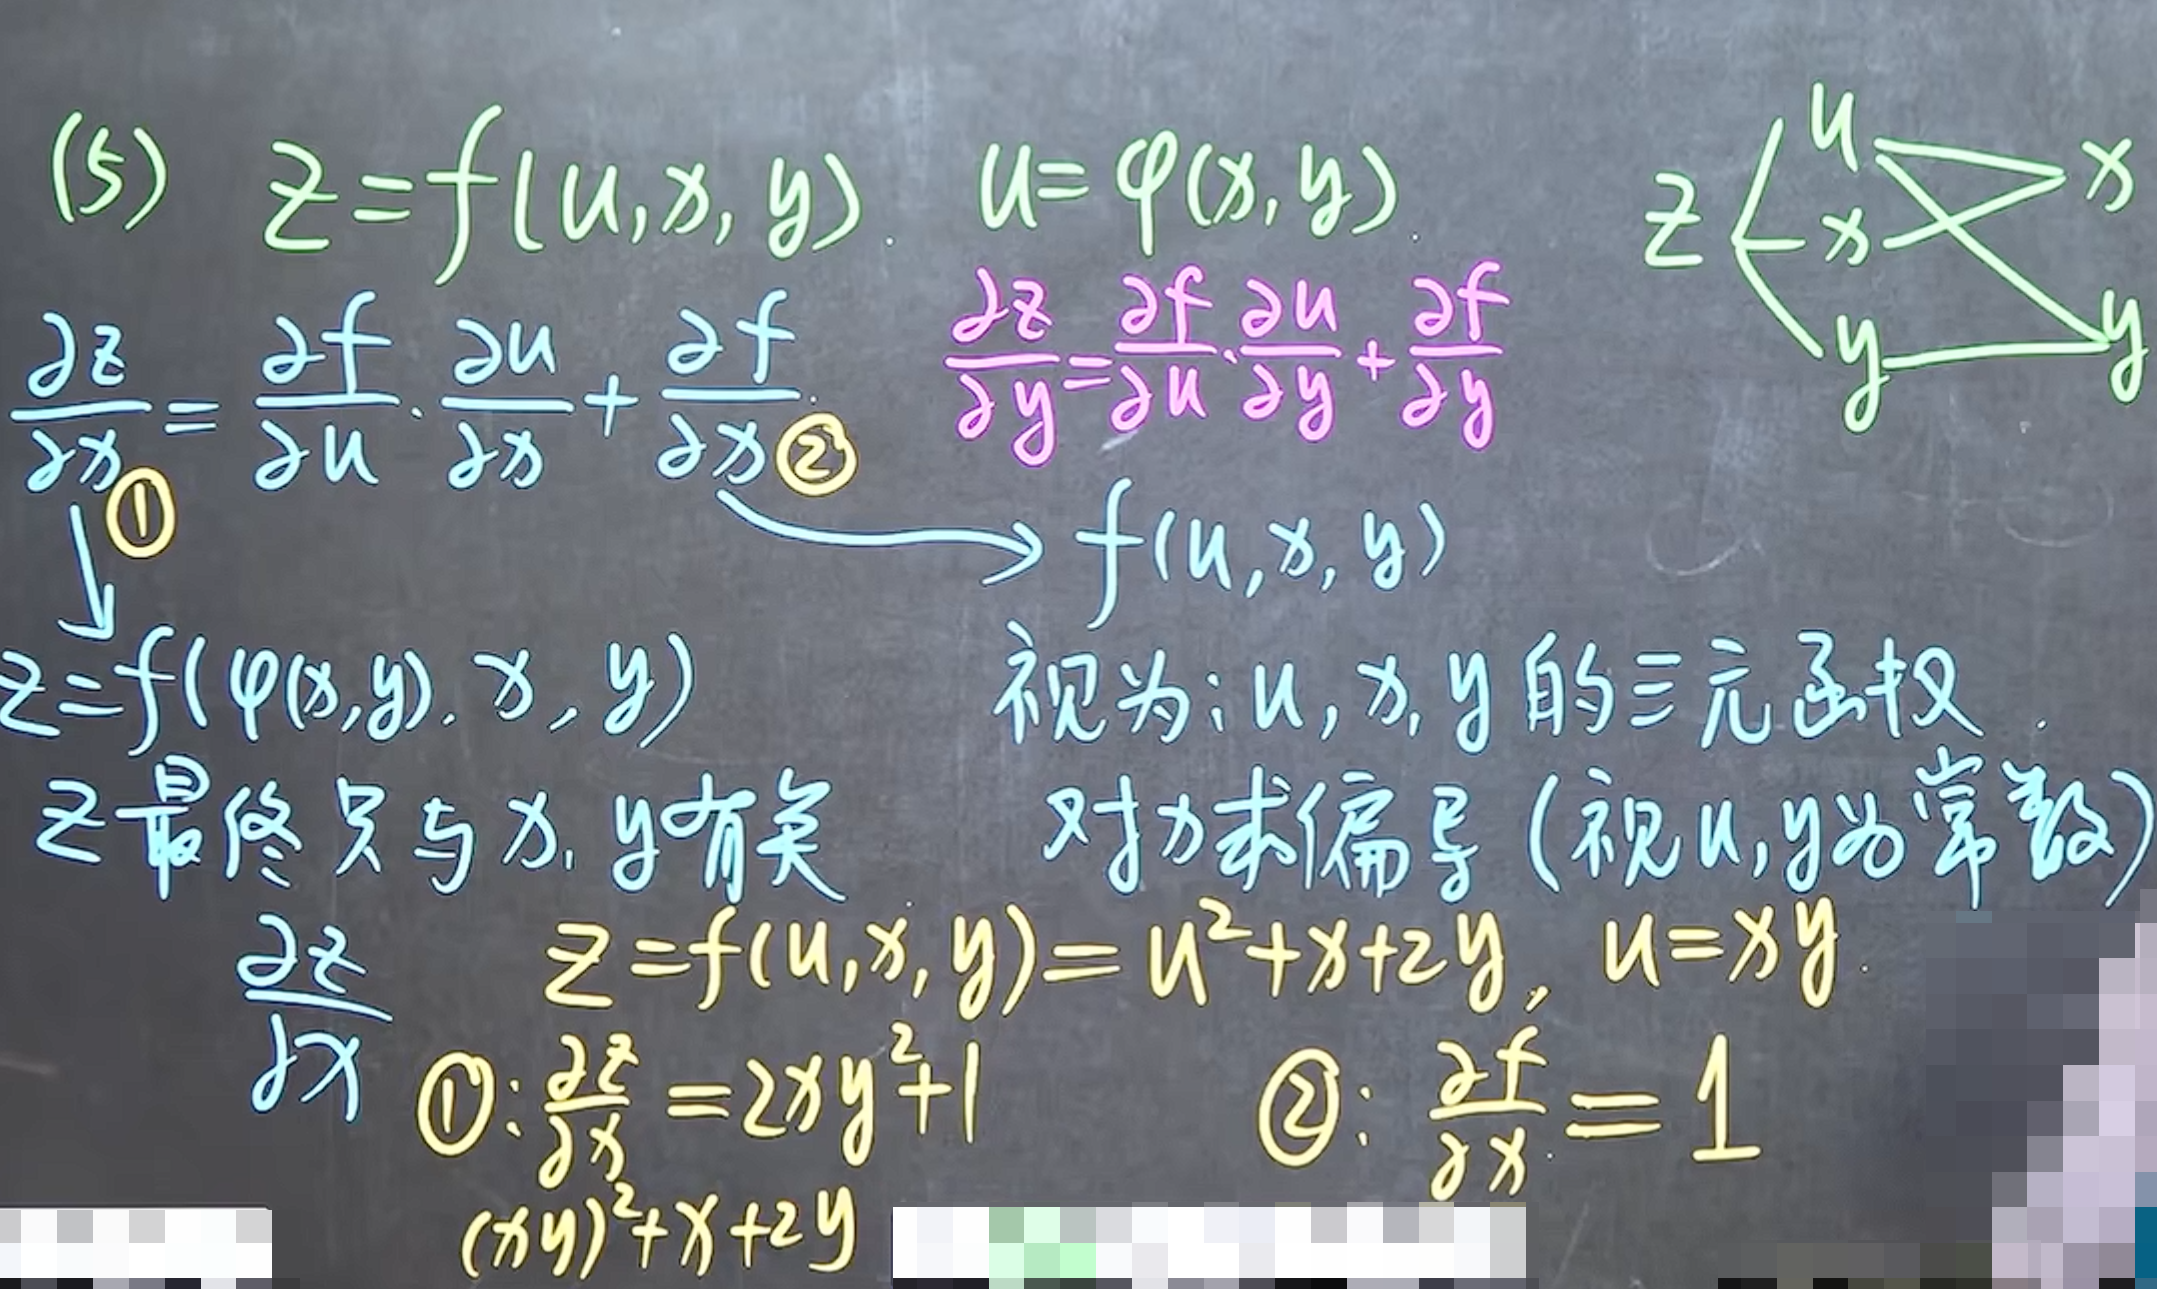 (5) z=f(u,x,y). u=φ(x,y).
z u x y x y
∂z/∂x ① = ∂f/∂u · ∂u/∂x + ∂f/∂x ②
∂z/∂y = ∂f/∂u · ∂u/∂y + ∂f/∂y
f(u,x,y)
z=f(φ(x,y). x, y)
视为:u,x,y的三元函权.
z最终只与x,y有关
对x求偏导(视u,y为常数)
∂z/∂x
z=f(u,x,y)=u²+x+2y, u=xy.
①: ∂z/∂x =2xy²+1
②: ∂f/∂x =1
(xy)²+x+2y